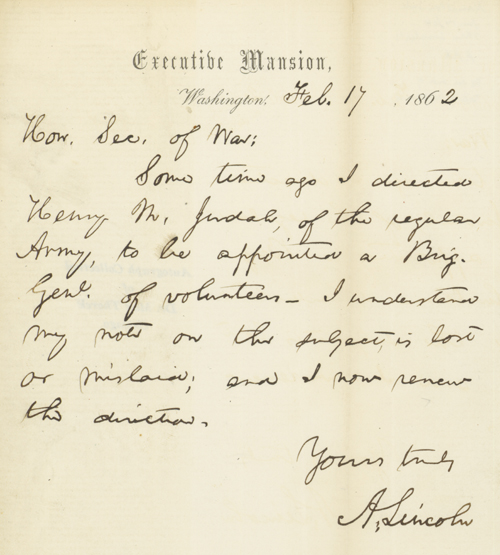 Executive Mansion,
Washington, Feb. 17, 1862
Hon. Sec. of War:
Some time ago I directed
Henry M. Judah, of the regular
Army, to be appointed a Brig.
Genl. of volunteers— I understand
my note on the subject, is lost
or mislaid; and I now renew
the direction.
Yours truly
A. Lincoln